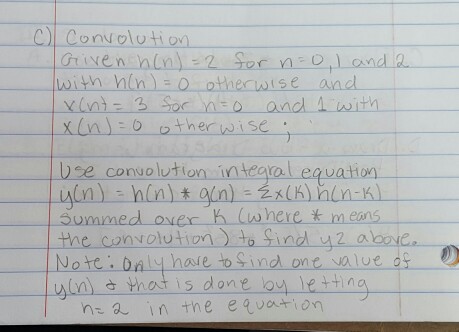 C) Convolution
Given h(n) = 2 for n=0,1 and 2
with h(n) = 0 otherwise and
x(n) = 3 for n=0 and 1 with
x(n) = 0 otherwise ;
Use convolution integral equation
y(n) = h(n) * g(n) = Σx(k)h(n-k)
summed over k (where * means
the convolution) to find y2 above.
Note: only have to find one value of
y(n) & that is done by letting
n=2 in the equation